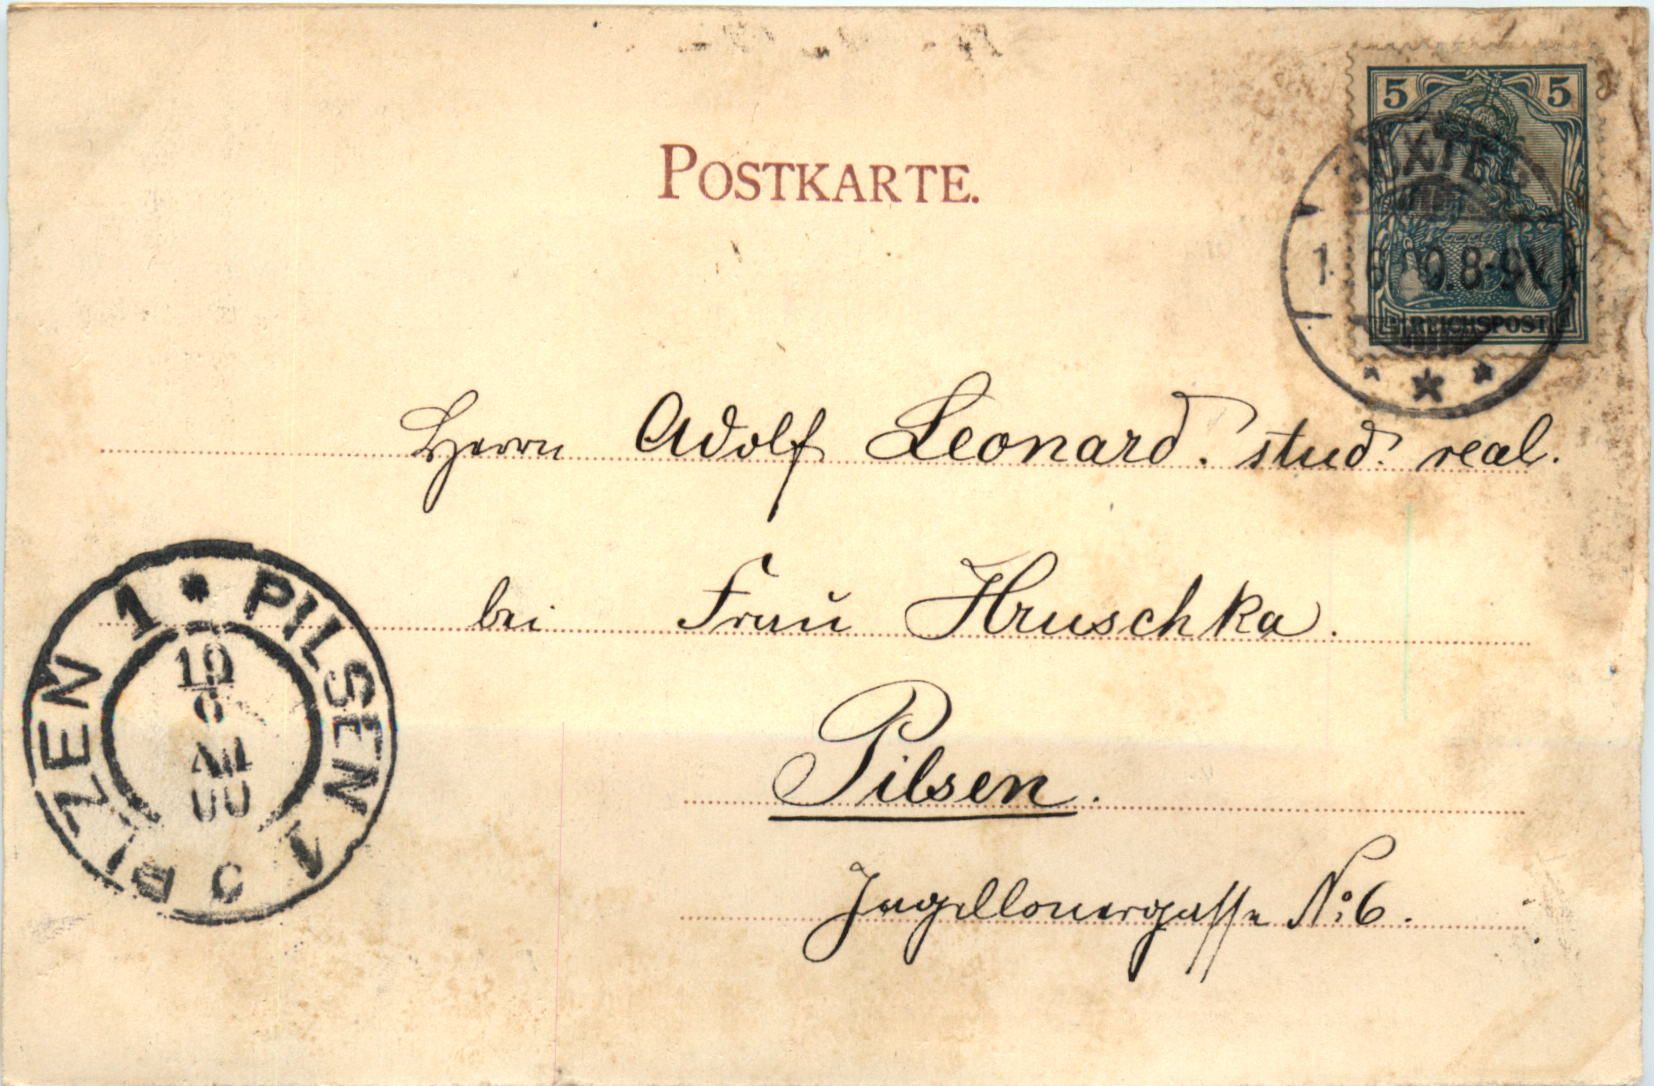 5 5
POSTKARTE.
8-9V.
REICHSPOST
Herrn Adolf Leonard. stud. real.
bei Frau Hruschka.
Pilsen.
Jagellonergasse No 6.
PILSEN 1
PLZEN 1
10
6
00